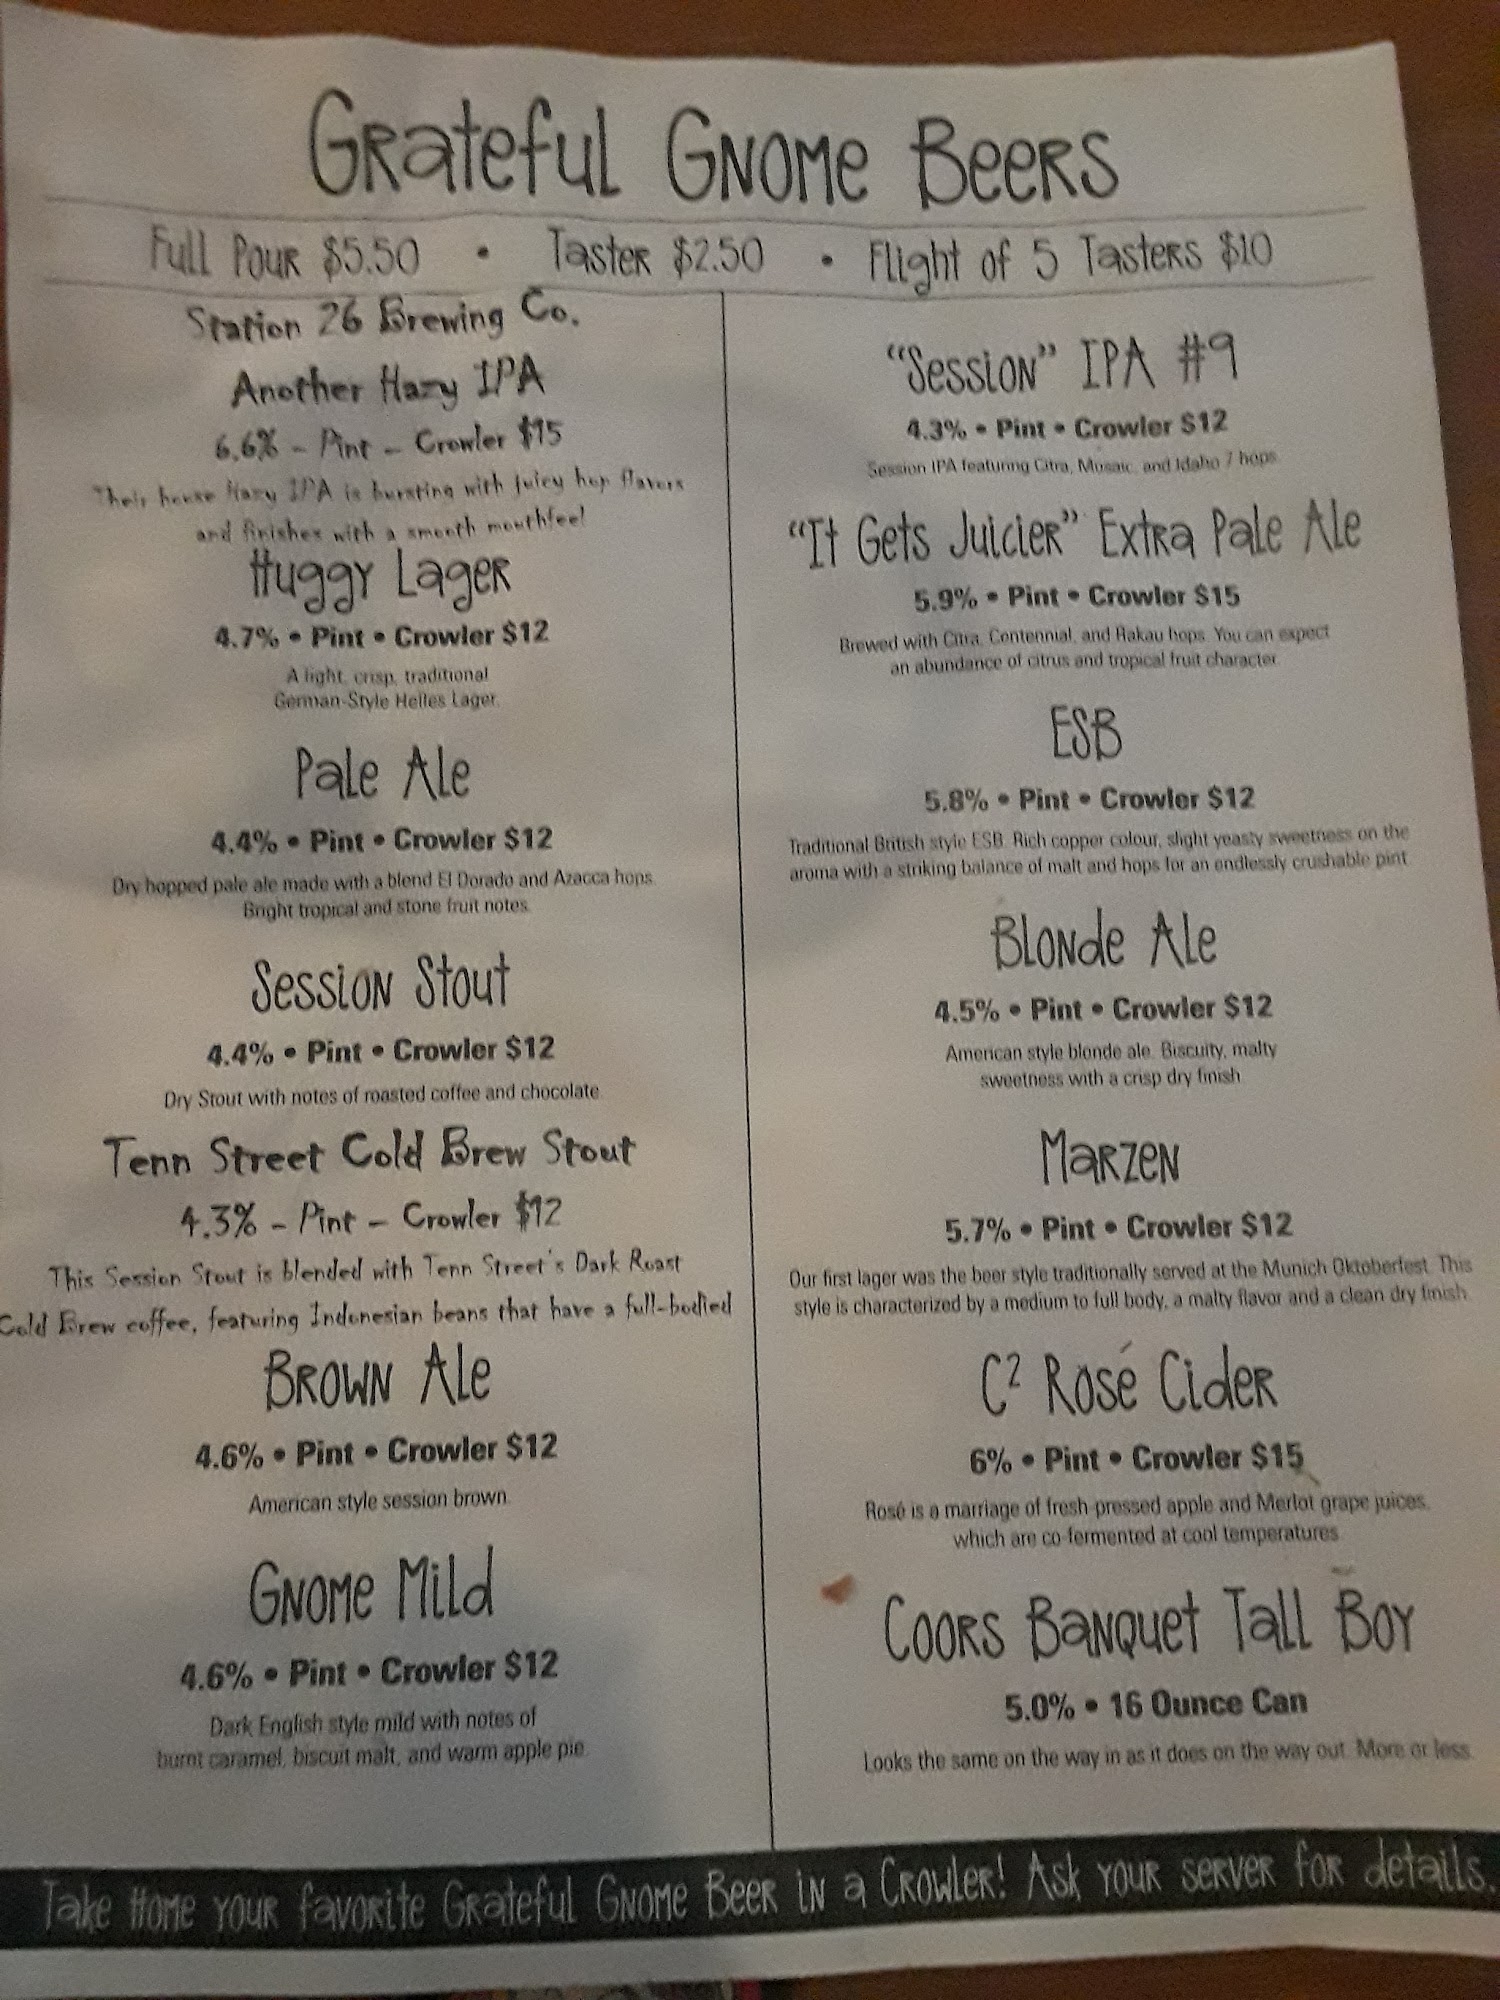 Grateful Gnome Beers
Full Pour $5.50 • Taster $2.50 • Flight of 5 Tasters $10
Station 26 Brewing Co.
Another Hazy IPA
6.6% - Pint - Crowler $15
Their house Hazy IPA is bursting with juicy hop flavors
and finishes with a smooth mouthfeel
Huggy Lager
4.7% • Pint • Crowler $12
A light, crisp, traditional
German-Style Helles Lager.
Pale Ale
4.4% • Pint • Crowler $12
Dry hopped pale ale made with a blend El Dorado and Azacca hops.
Bright tropical and stone fruit notes.
Session Stout
4.4% • Pint • Crowler $12
Dry Stout with notes of roasted coffee and chocolate.
Tenn Street Cold Brew Stout
4.3% - Pint - Crowler $12
This Session Stout is blended with Tenn Street's Dark Roast
Cold Brew coffee, featuring Indonesian beans that have a full-bodied
Brown Ale
4.6% • Pint • Crowler $12
American style session brown.
Gnome Mild
4.6% • Pint • Crowler $12
Dark English style mild with notes of
burnt caramel, biscuit malt, and warm apple pie.
"Session" IPA #9
4.3% • Pint • Crowler $12
Session IPA featuring Citra, Mosaic, and Idaho 7 hops.
"It Gets Juicier" Extra Pale Ale
5.9% • Pint • Crowler $15
Brewed with Citra, Centennial, and Rakau hops. You can expect
an abundance of citrus and tropical fruit character.
ESB
5.8% • Pint • Crowler $12
Traditional British style ESB. Rich copper colour, slight yeasty sweetness on the
aroma with a striking balance of malt and hops for an endlessly crushable pint.
Blonde Ale
4.5% • Pint • Crowler $12
American style blonde ale. Biscuity, malty
sweetness with a crisp dry finish.
Marzen
5.7% • Pint • Crowler $12
Our first lager was the beer style traditionally served at the Munich Oktoberfest. This
style is characterized by a medium to full body, a malty flavor and a clean dry finish.
C² Rosé Cider
6% • Pint • Crowler $15
Rosé is a marriage of fresh-pressed apple and Merlot grape juices,
which are co-fermented at cool temperatures.
Coors Banquet Tall Boy
5.0% • 16 Ounce Can
Looks the same on the way in as it does on the way out. More or less.
Take Home your favorite Grateful Gnome Beer in a Crowler! Ask your server for details.